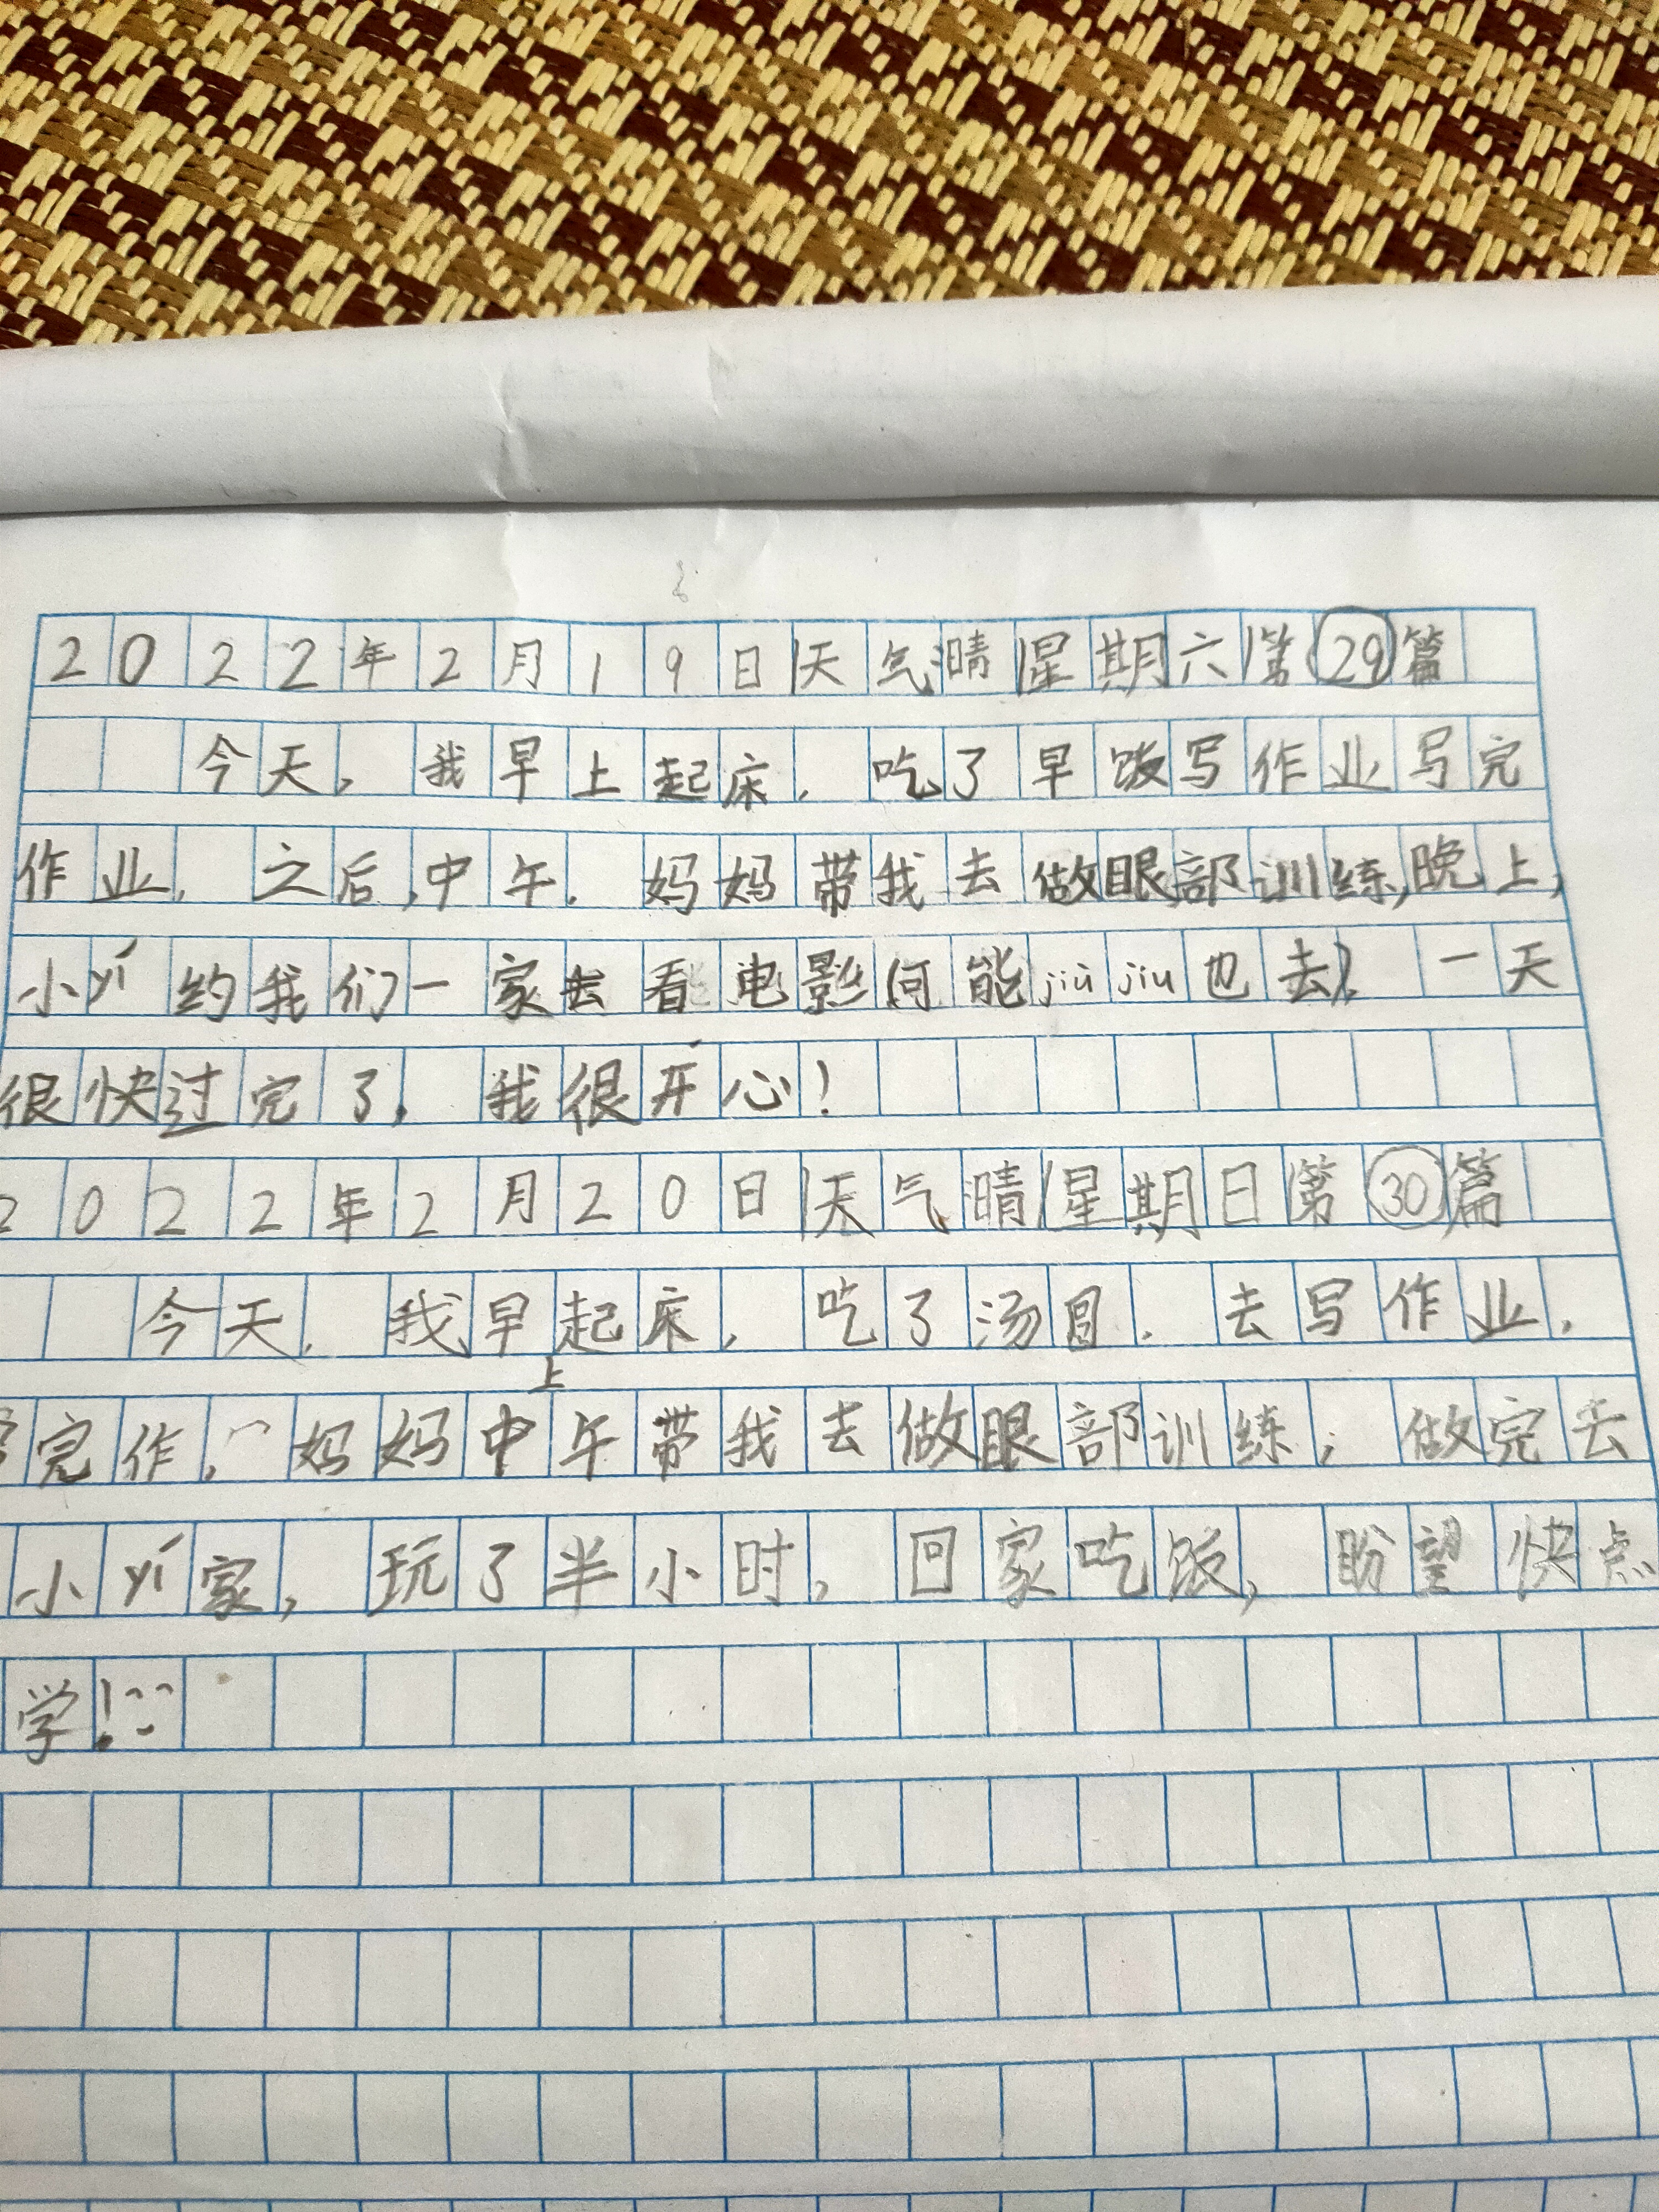 2022年2月19日天气晴星期六第㉙篇
今天,我早上起床,吃了早饭写作业写完
作业,之后,中午,妈妈带我去做眼部训练,晚上,
小yí约我们一家去看电影(何能jiù jiu也去),一天
很快过完了,我很开心!
2022年2月20日天气晴星期日第㉚篇
今天,我早上起床,吃了汤圆,去写作业,
完作,妈妈中午带我去做眼部训练,做完去
小yí家,玩了半小时,回家吃饭,盼望快点
学!